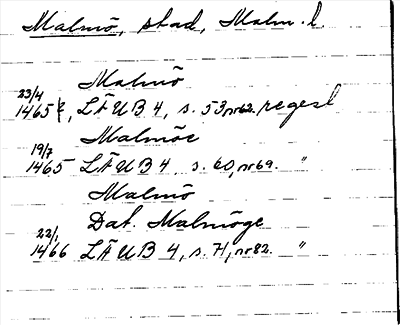 Malmö, stad, Malm. l.
Malmö
23/4
1465 , LÄUB 4, s. 53, nr 62. regest
Malmöe
19/7
1465 LÄUB 4 s. 60, nr 69. "
Malmö
Dat. Malmöge
22/1
1466 LÄUB 4, s. 71, nr 82. "